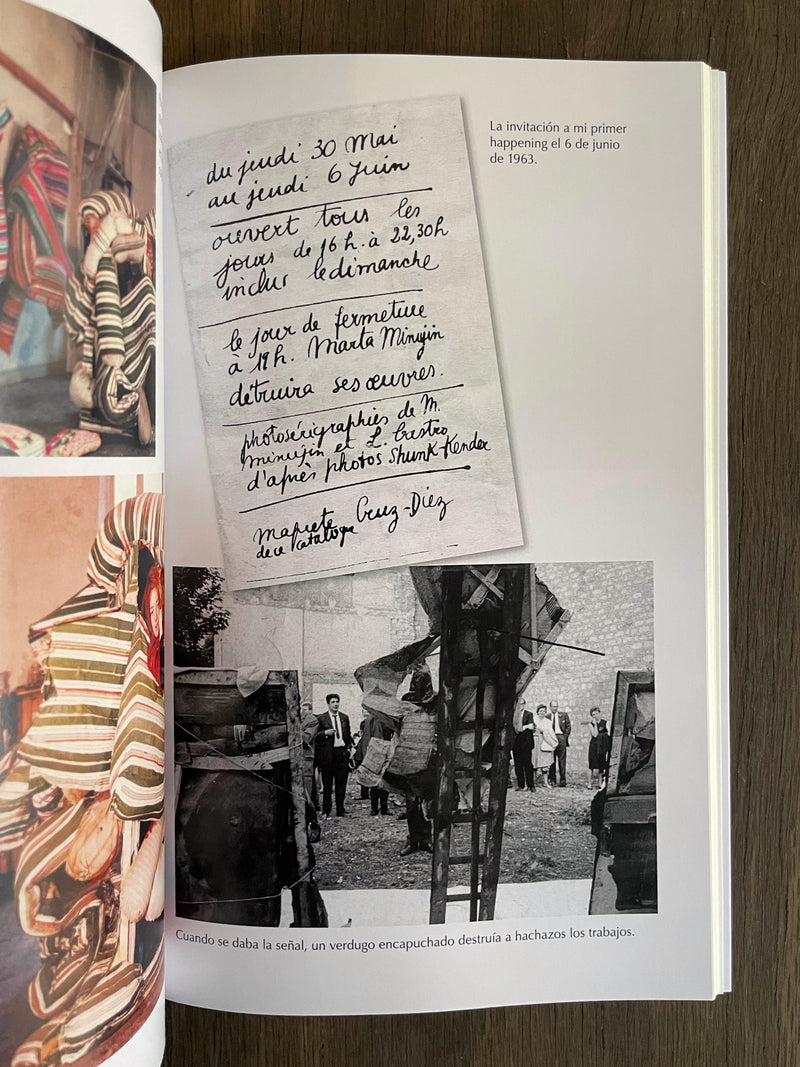 du jeudi 30 Mai
au jeudi 6 Juin
ouvert tous les
jours de 16 h. à 22,30h
inclus le dimanche
le jour de fermeture
à 19h. Marta Minujin
détruira ses œuvres.
photosérigraphies de M.
Minujin et L. Castro
d'après photos Shunk-Kender
de ce catalogue Cruz-Diez
La invitación a mi primer
happening el 6 de junio
de 1963.
Cuando se daba la señal, un verdugo encapuchado destruía a hachazos los trabajos.